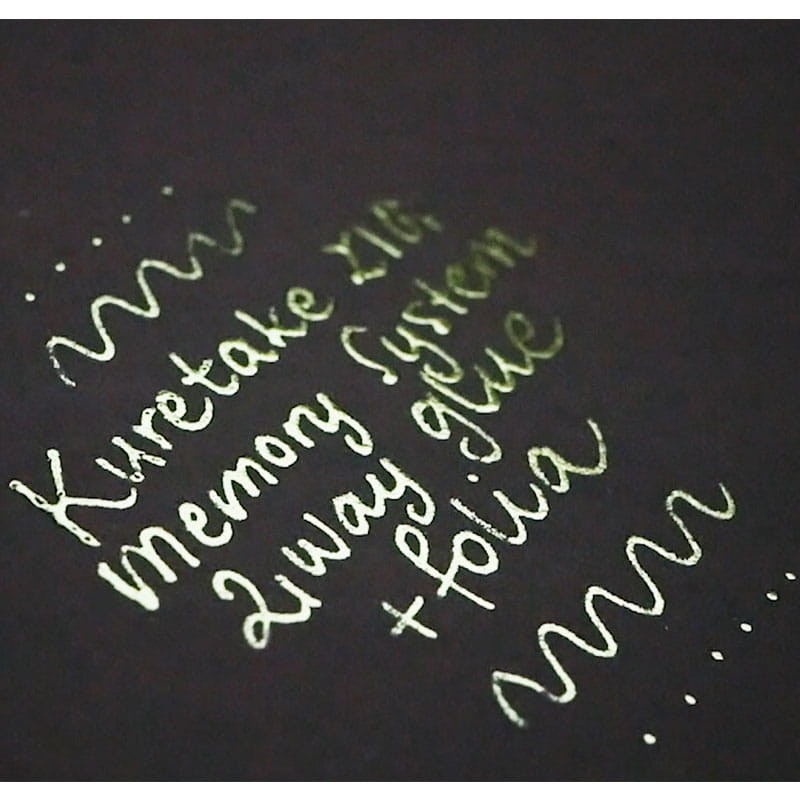 Kuretake ZIG,
memory System
2 way glue
+ folia